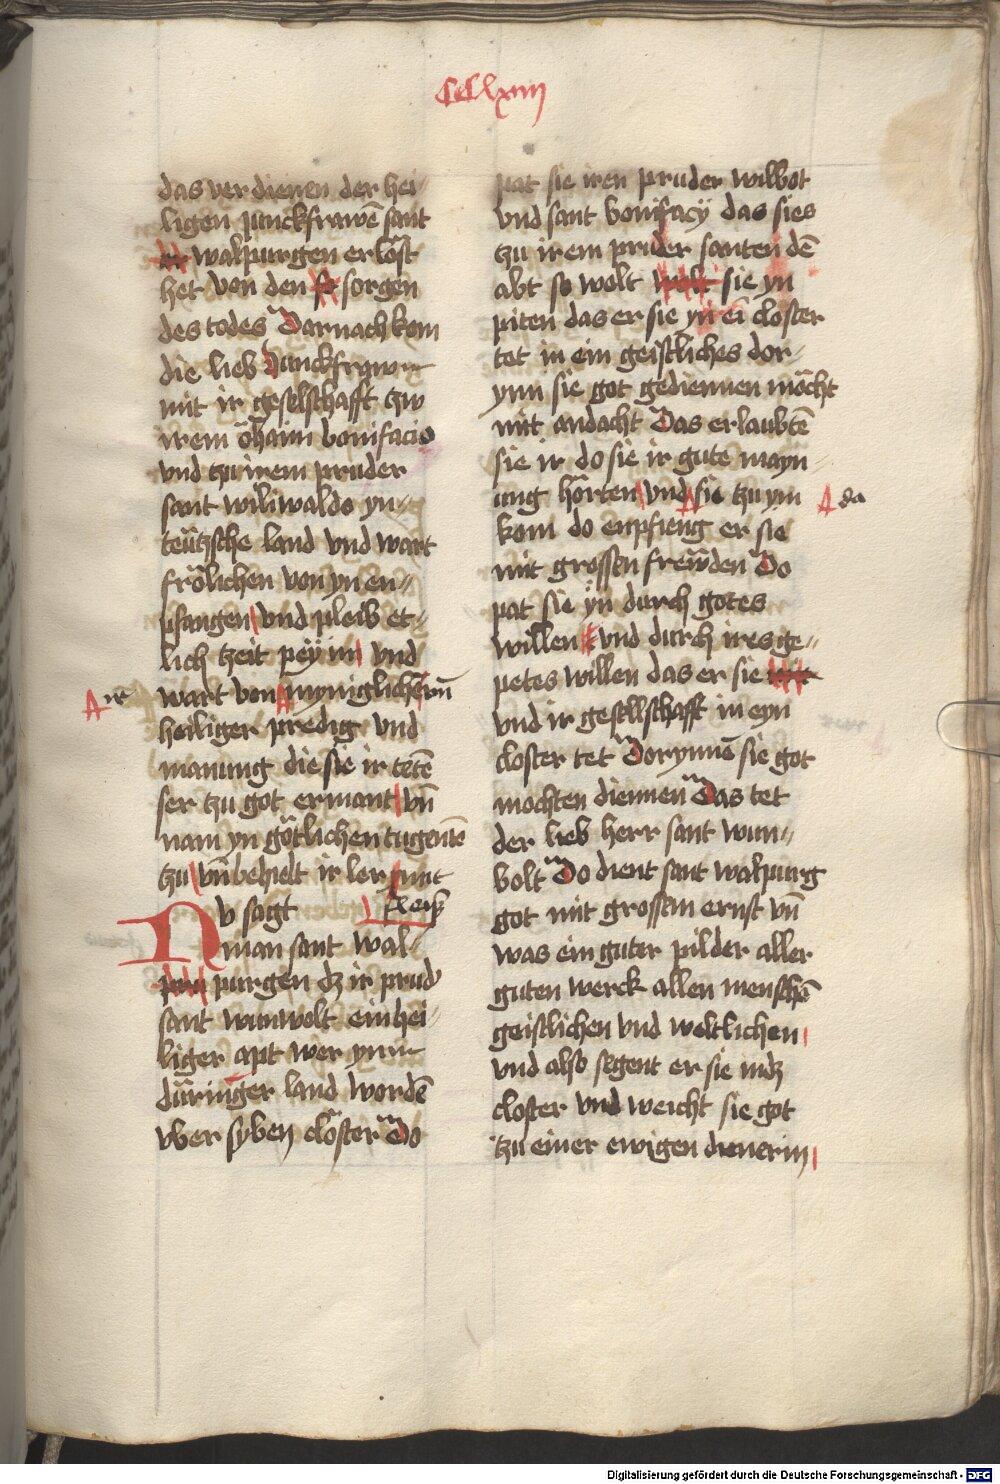 CCLxiiij
das verdienen der hei-
ligen junckfrawē sant
walpurgen erlöst
het von den sorgen
des todes Darnach kom
die lieb Junckfraw
mit ir geselschafft tzw
irem öhaim bonifacio
vnd tzu irem pruder
sant wiliwaldo yn-
teützsche land vnd wart
frölichen von yn en-
pfangen vnd pleib et-
lich tzeit pey im vnd
ir
wart von myniglichē vn̄
heiliger predig vnd
manung die sie ir tetē
ser tzu got ermant vn̄
nam yn götlichen tugentē
tzu vn̄ behielt ir ler
Nv sagt
man sant wal-
purgen dz ir prud
sant wunwolt ein hei-
liger apt wer ynn
düringer land wordē
vber syben clöster Do
pat sie iren pruder wilbot
vnd sant bonifacÿ das sies
tzu irem pruder santen dē
abt so wolt sie yn
piten das er sie yn ei closter
tet in ein geistliches dor-
ynn sie got gediennen möcht
mit andacht Das erlaubtē
sie ir do sie ir gute mayn-
ung hörten vnd sie tzu ym
da
kom do enpfieng er sie
mit grossen frewden Do
pat sie yn durch gotes
willen vnd durch ires ge-
petes willen das er sie
vnd ir gesellschafft in eyn
closter tet Dorynnē sie got
mochten diennen Das tet
der lieb herr sant wun-
bolt Do dient sant walpurg
got mit grossem ernst vn̄
was ein guter pilder aller
guten werck allen menschē
geistlichen vnd weltlichen
vnd also segent er sie in dz
closter vnd weicht sie got
tzu einer ewigen dienerin
Digitalisierung gefördert durch die Deutsche Forschungsgemeinschaft - DFG